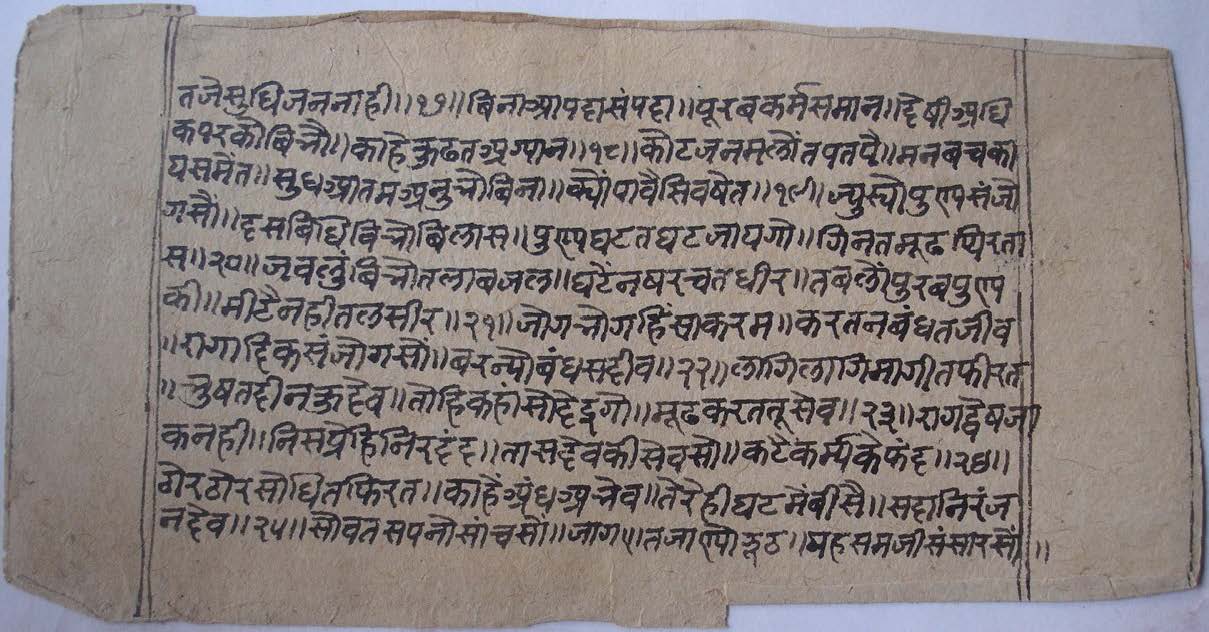 तजैसुधिजननाही॥१७॥बिनाआपदासंपदा॥पूरबकर्मसमान॥देषीअधि
कपरकौबिभौ॥काहेकुढतअग्यान॥१८॥कौटजनमलौंतपतपै॥मनबचका
यसमेत॥सुधआतमअनुभौबिना॥क्यौंपावैसिवषेत॥१९॥ज्युस्यौपुण्यसंजो
गसौं॥दसबिधिबिभौबिलास॥पुण्यघटतघटजायगौ॥गिनतमूढथिरता
स॥२०॥जबलुंबिभौतलाबजल॥घटैनषरचतधीर॥तबलौंपुरबपुण्य
की॥मीटैनहीतलसीर॥२१॥जोगभोगहिंसाकरम॥करतनबंधतजीव
॥रागादिकसंजोगसौं॥बरन्यौबंधसदीव॥२२॥लागिलागिमागीतफीरत
॥भुषतदीनकुदेव॥तोहिकहांसौदेइगौ॥मूढकरततूसेव॥२३॥रागद्वेषजा
कनही॥निसप्रेहिनिरदंद॥तासदेवकीसेवसौ॥कटैकर्म्मकेफंद॥२४॥
ठौरठौरसोधितफिरत॥काहैंअंधअभेव॥तेरेहीघटमेंबीसै॥सदानिरंज
नदेव॥२५॥सोवतसपनौसाचसौं॥जागातजाण्यौझूठ॥यहसमजीसंसारसौं॥